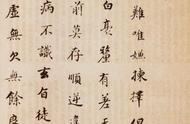 難唯嫌揀擇但
白毫釐有差天
前莫存順逆違
病不識玄旨徒
虛無欠無餘良